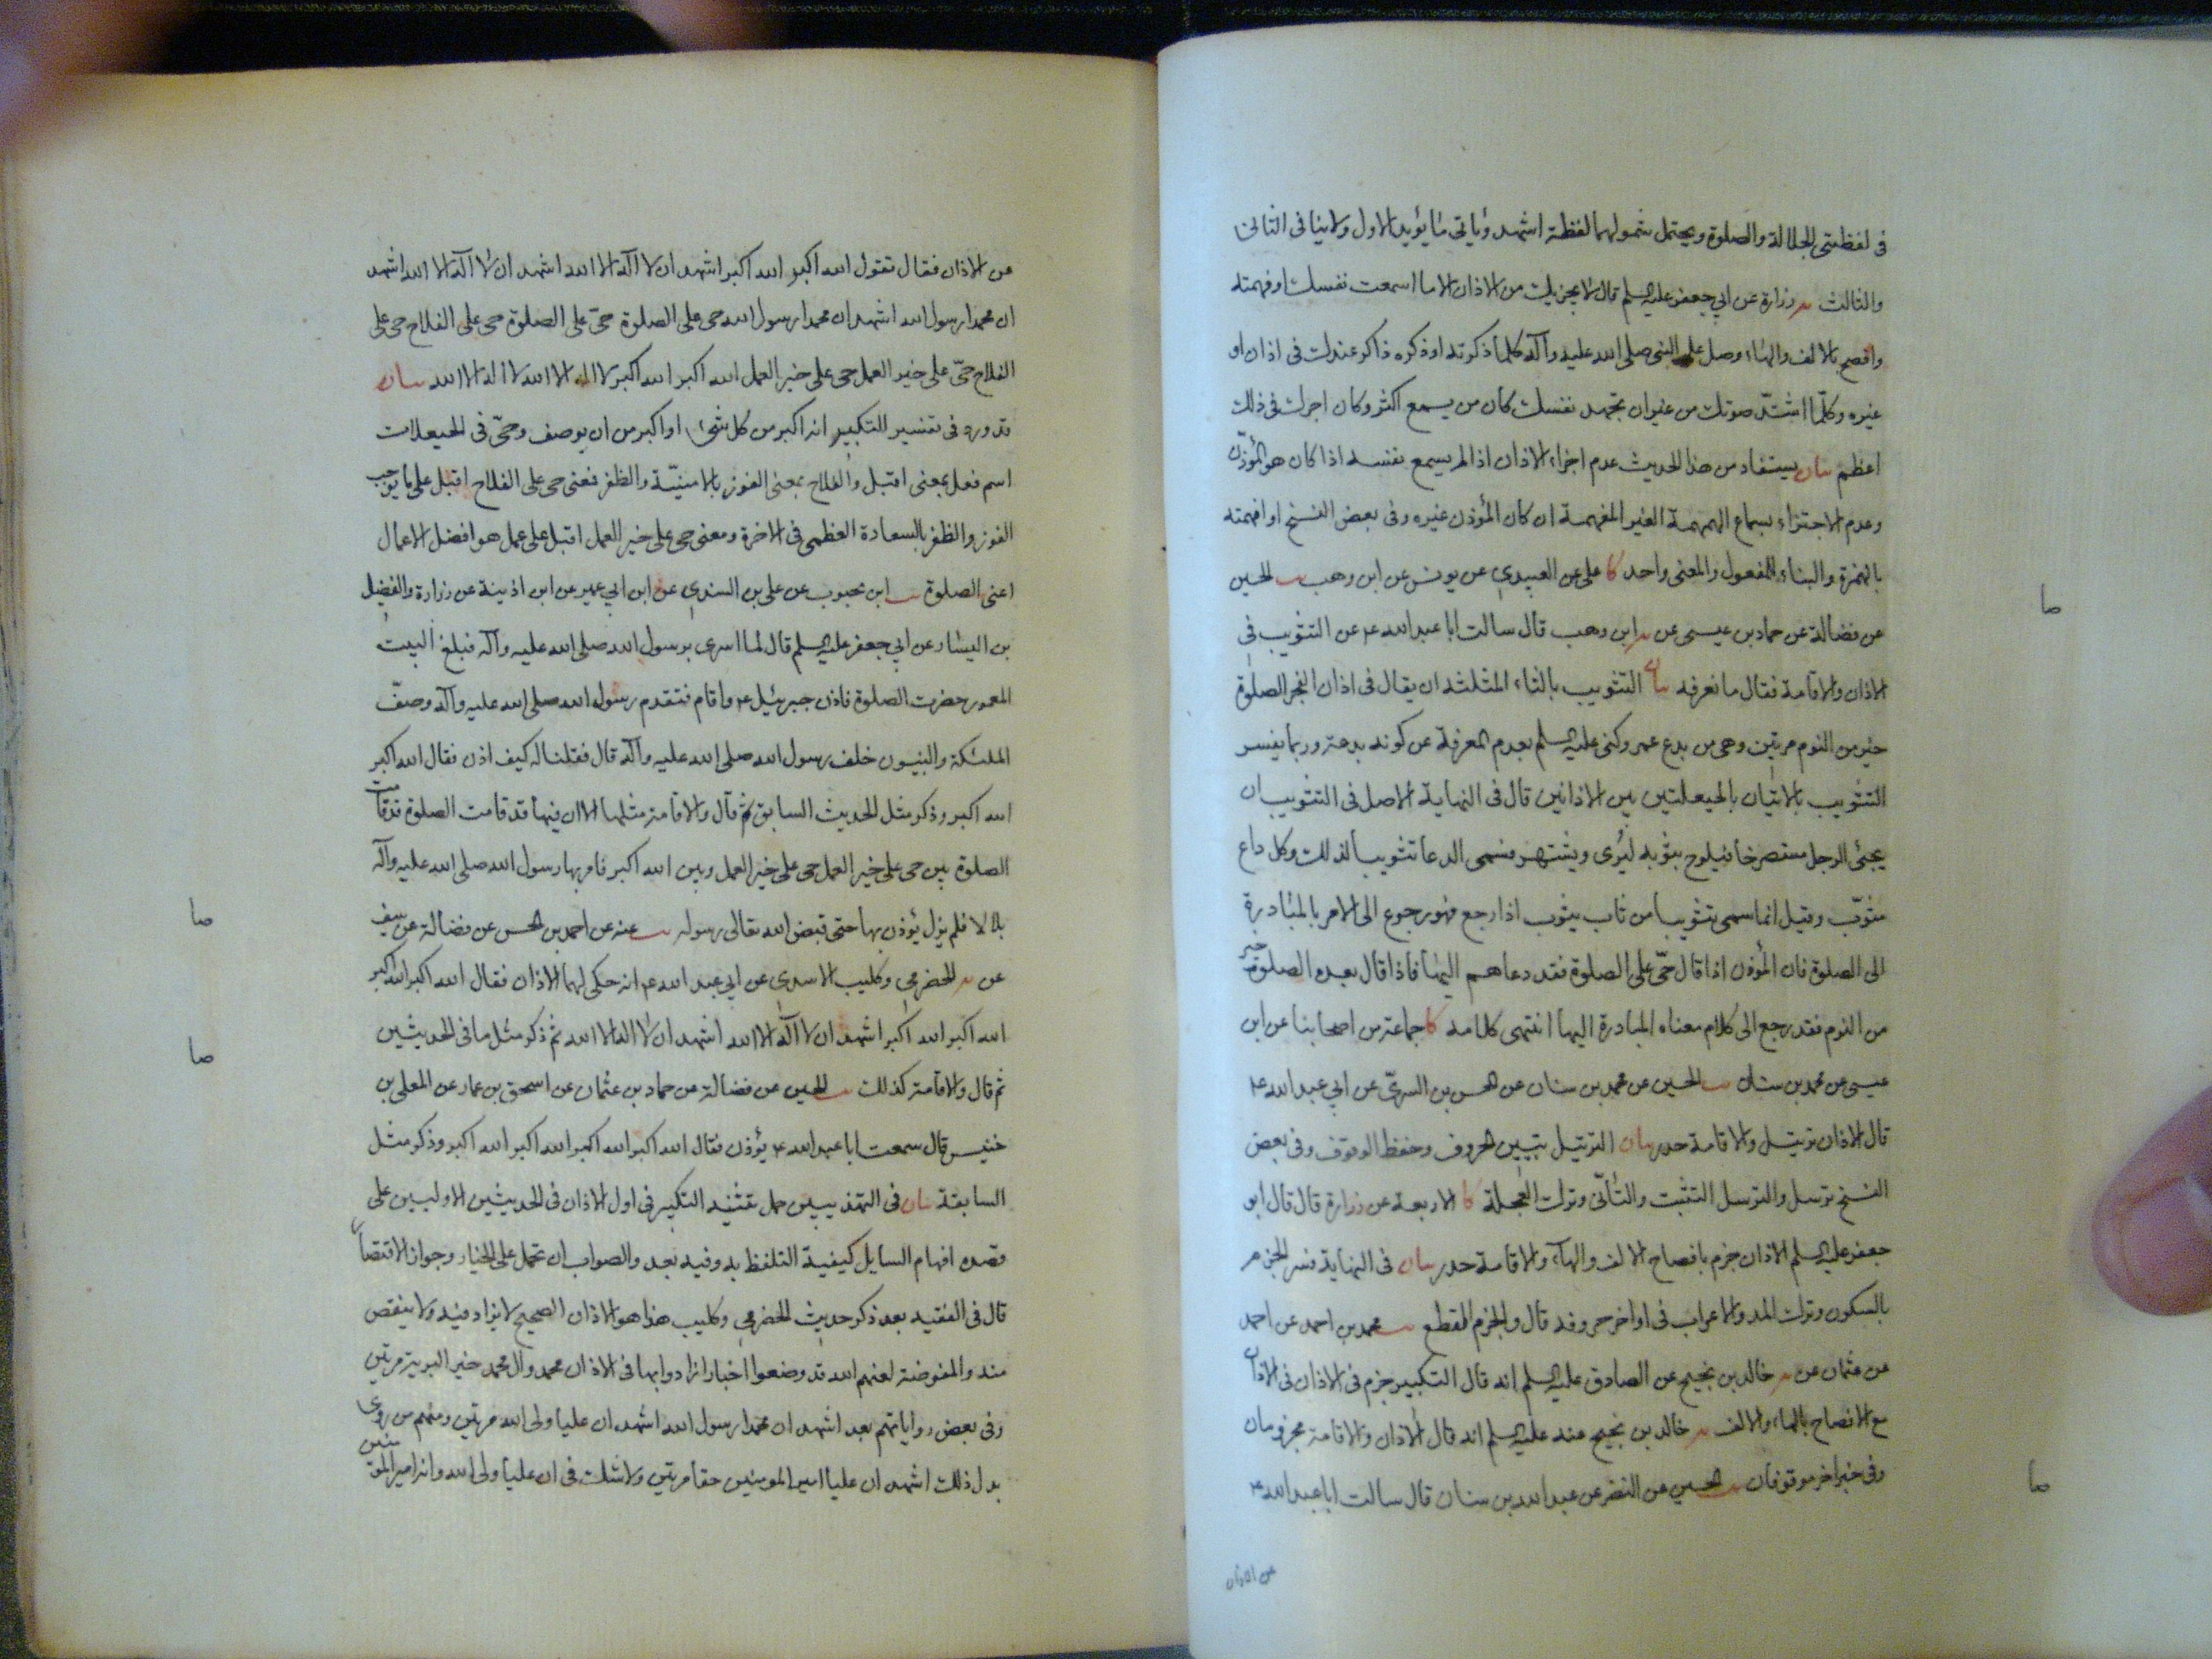 فى لفظتى الجلالة والصلوة ويحتمل شمولهما لفظة اشهد وياتى ما يؤيد الاول ولاينافى الثانى
والثالث يه زرارة عن ابي جعفر عليه السلم قال لا يجزيك من الاذان الا ما اسمعت نفسك او فهمته
وافصح بالالف والهاء وصل على النبى صلى الله عليه وآله كلما ذكرته او ذكره ذاكر عندك فى اذان او
غيره وكلّما اشتدّ صوتك من غير ان تجهد نفسك كان من يسمع اكثر وكان اجرك فى ذلك
اعظم بيان يستفاد من هذا الحديث عدم اجزاء الاذان اذا لم يسمع نفسه اذا كان هو المؤذّن
وعدم الاجتزاء بسماع الهمهمة الغير المفهمة ان كان المؤذن غيره وفى بعض النسخ او افهمته
بالهمزة والبناء للمفعول والمعنى واحد كا على عن العبيدي عن يونس عن ابن وهب يب الحسين
عن فضالة عن حماد بن عيسى عن يه ابن وهب قال سالت ابا عبد الله ع عن التثويب فى
الاذان والاقامة فقال ما نعرفه بيان التثويب بالثاء المثلثه ان يقال فى اذان الفجر الصلوة
خير من النوم مرتين وهى من بدع عمر وكنى عليه السلم بعدم المعرفة عن كونه بدعة وربما يفسر
التثويب بالاتيان بالحيعلتين بين الاذانين قال فى النهاية الاصل فى التثويب ان
يجئ الرجل مستصرخا فيلوح بثوبه ليُرى ويشتهر فسمى الدعا تثويبا لذلك وكل داع
مثوّب وقيل انما سمى تثويبا من ثاب يثوب اذا رجع فهو رجوع الى الامر بالمبادرة
الى الصلوة فان المؤذن اذا قال حىّ على الصلوة فقد دعاهم اليها فاذا قال بعده الصلوة خير
من النوم فقد رجع الى كلام معناه المبادرة اليها انتهى كلامه كا جماعة من اصحابنا عن ابن
عيسى عن محمد بن سنان يب الحسين عن محمد بن سنان عن الحسن بن السرىّ عن ابي عبد الله ع
قال الاذان ترتيل والاقامة حدر بيان الترتيل تبيين الحروف وحفظ الوقوف وفى بعض
النسخ ترسل والترسل التثبت والتأنّى وترك العجلة كا الاربعة عن زرارة قال قال ابو
جعفر عليه السلم الاذان جزم بافصاح الالف والهاء والاقامة حدر بيان فى النهاية فسر الجزم
بالسكون وترك المد والاعراب فى اواخر حروفه قال والجزم القطع يب محمد بن احمد عن احمد
عن عثمان عن يه خالد بن نجيح عن الصادق عليه السلم انه قال التكبير جزم فى الاذان فى الاذان
مع الافصاح بالهاء والالف يه خالد بن نجيح عنه عليه السلم انه قال الاذان والاقامة مجزومان
وفى خبر اخر موقوفان يب الحسين عن النضر عن عبد الله بن سنان قال سالت ابا عبد الله ع
عن الاذان
صا
صا
عن الاذان فقال تقول الله اكبر الله اكبر اشهد ان لا اله الا الله اشهد ان لا اله الا الله اشهد
ان محمدا رسول الله اشهد ان محمدا رسول الله حى على الصلوة حىّ على الصلوة حى على الفلاح حى على
الفلاح حىّ على خير العمل حى على خير العمل الله اكبر الله اكبر لا اله الا الله لا اله الا الله بيان
قد ورد فى تفسير التكبير انه اكبر من كل شئ او اكبر من ان يوصف وحىّ فى الحيعلات
اسم فعل بمعنى اقبل والفلاح بمعنى الفوز بالامنيّة والظفر فمعنى حى على الفلاح اقبل على ما يوجب
الفوز والظفر بالسعادة العظمى فى الاخرة ومعنى حى على خير العمل اقبل على عمل هو افضل الاعمال
اعنى الصلوة يب ابن محبوب عن على بن السندي عن ابن ابي عمير عن ابن اذينة عن زرارة والفضيل
بن اليسار عن ابي جعفر عليه السلم قال لما اسرى برسول الله صلى الله عليه وآله فبلغ البيت
المعمور حضرت الصلوة فاذن جبرئيل ع واقام فتقدم رسول الله صلى الله عليه وآله وصفّ
الملئكة والنبيون خلف رسول الله صلى الله عليه وآله قال فقلنا له كيف اذن فقال الله اكبر
الله اكبر وذكر مثل الحديث السابق ثم قال والاقامة مثلها الا ان فيها قد قامت الصلوة قد قامت
الصلوة بين حى على خير العمل حى على خير العمل وبين الله اكبر فامر بها رسول الله صلى الله عليه وآله
بلالا فلم يزل يؤذن بها حتى قبض الله تعالى رسوله يب عنه عن احمد بن الحسن عن فضالة عن سيف
عن يه الحضرمي وكليب الاسدي عن ابي عبد الله ع انه حكى لهما الاذان فقال الله اكبر الله اكبر
الله اكبر الله اكبر اشهد ان لا اله الا الله اشهد ان لا اله الا الله ثم ذكر مثل ما فى الحديثين
ثم قال والاقامة كذلك يب الحسين عن فضالة عن حماد بن عثمان عن اسحق بن عمار عن المعلى بن
خنيس قال سمعت ابا عبد الله ع يؤذن فقال الله اكبر الله اكبر الله اكبر الله اكبر وذكر مثل
السابقة بيان فى التهذيبين حمل تثنية التكبير فى اول الاذان فى الحديثين الاوليين على
قصده افهام السايل كيفية التلفظ به وفيه بعد والصواب ان تحمل على الخيار وجواز الاقتصار
قال فى الفقيه بعد ذكر حديث الحضرمي وكليب هذا هو الاذان الصحيح لا يزاد فيه ولا ينقص
منه والمفوضة لعنهم الله قد وضعوا اخبارا زادوا بها فى الاذان محمد وال محمد خير البرية مرتين
وفى بعض رواياتهم بعد اشهد ان محمدا رسول الله اشهد ان عليا ولى الله مرتين ومنهم من روى
بدل ذلك اشهد ان عليا امير المومنين حقا مرتين ولا شك فى ان عليا ولى الله وانه امير المومنين
صا
صا